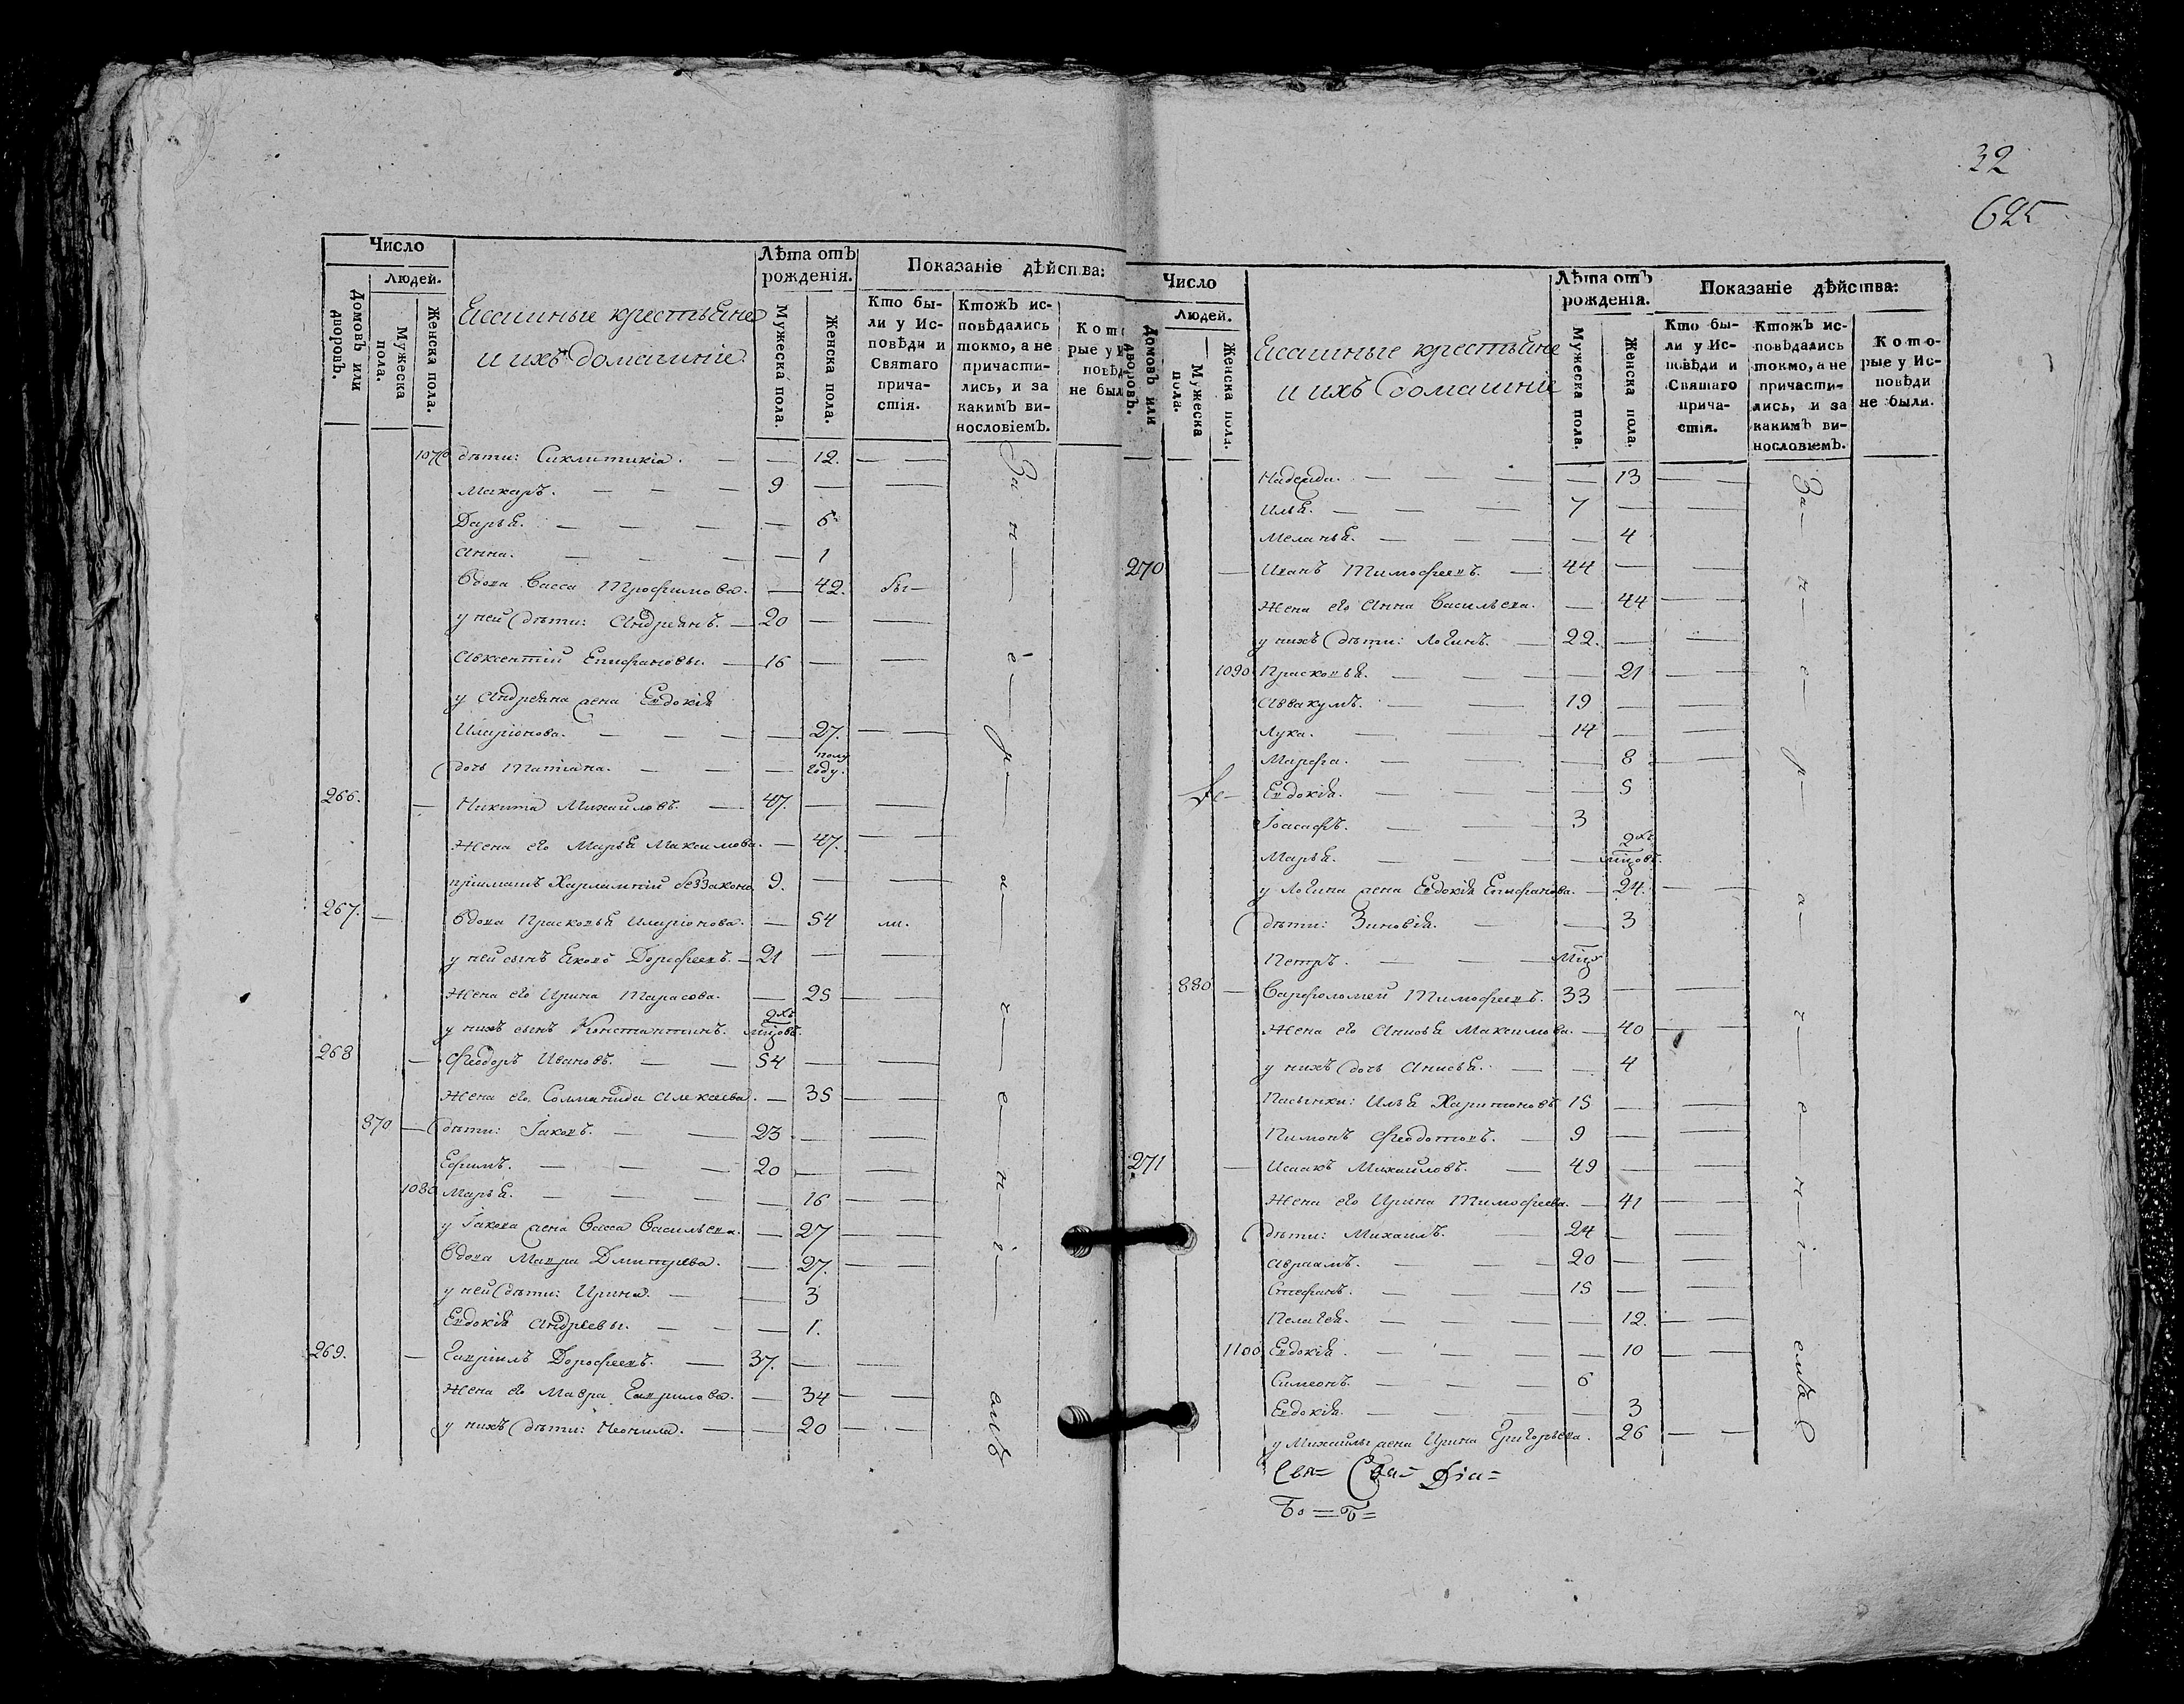 Число
Лѣта отъ рожденія.
Показаніе дѣйства:
Людей.
Домовъ или дворовъ.
Мужеска пола.
Женска пола.
Ясашные крестьяне
и ихъ домашніе
Мужеска пола.
Женска пола.
Кто бы-
ли у Ис-
повѣди и
Святаго
прича-
стія.
Ктожъ ис-
повѣдались
токмо, а не
причасти-
лись, и за
какимъ ви-
нословіемъ.
1070 дѣти: Сиклитикіа. — — 12. — —
Макаръ. — — — 9 — —
Дарья. — — — — 6
Анна. — — — — 1
вдова Васса Трофимова. — 42. бы—
у ней дѣти: Андреянъ. — 20 — —
Авксентій Епифановы. — 16 — —
у Андреяна жена Евдокія
Иларіонова. — — — — 27. — —
дочь Татіана. — — — полу году.
266. — Никита Михайловъ. — 47. — —
Жена его Марья Максимова. — 47. — —
пріимышъ Харлампій беззакон. 9. — —
267. — вдова Прасковья Иларіонова. — 54 ли.
у ней сынъ Яковъ Дорофеевъ. — 21 — —
Жена его Ирина Тарасова. — 25 — —
у нихъ сынъ Константинъ. 2хъ мцовъ.
268 — Феодоръ Ивановъ. — — 54 — —
Жена его Соломанида Алексеева. — 35 — —
870 — дѣти: Іаковъ. — — 23 — —
Ефимъ. — — — 20 — —
1080 Марья. — — — — 16 — —
у Іакова жена Васса Васильева. — 27 — —
вдова Мавра Дмитріева. — 27. — —
у ней дѣти: Ирина. — — 3
Евдокія Андреевы. — — — 1.
269. — Гавріилъ Дорофеевъ. — 37. — —
Жена его Мавра Гаврилова. — 34 — —
у нихъ дѣти: Неонила. — — 20 — —
За н е р а ч е н і емъ
32
625
Число
Лѣта отъ рожденія.
Показаніе дѣйства:
Людей.
Домовъ или дворовъ.
Мужеска пола.
Женска пола.
Ясашные крестьяне
и ихъ домашніе
Мужеска пола.
Женска пола.
Кто бы-
ли у Ис-
повѣди и
Святаго
прича-
стія.
Ктожъ ис-
повѣдались
токмо, а не
причасти-
лись, и за
какимъ ви-
нословіемъ.
Кото-
рые у Ис-
повѣди
не были.
Надежда. — — — — 13 — —
Илья. — — — 7 — —
Меланья. — — — — 4
270 — Иванъ Тимофеевъ. — 44 — —
Жена его Анна Васильева. — 44 — —
у нихъ дѣти: Логинъ. — 22. — —
1090 Прасковья. — — — — 21 — —
Аввакумъ. — — 19 — —
Лука. — — 14 — —
Марфа. — — — 8 — —
Евдокія. — — — 5
Іоасафъ. — — 3
Марья. — — — — 2хъ мцовъ.
у Логина жена Евдокія Епифанова. — 24. — —
дѣти: Зиновія. — — 3
Петръ. — — — Мцъ
880 — Варфоломей Тимофеевъ. 33 — —
Жена его Анисья Максимова. — 40 — —
у нихъ дочь Анисья. — — 4
Пасынки: Илья Харитоновъ 15 — —
Пимонъ Феодотовъ. — 9 — —
271 — Исаакъ Михайловъ. — 49 — —
Жена его Ирина Тимофеева. — 41 — —
дѣти: Михаилъ. — 24 — —
Авраамъ. — — — 20 — —
Стефанъ. — — — 15 — —
Пелагея. — — — — 12. — —
1100 Евдокія. — — — — 10 — —
Симеонъ. — — — 6
Евдокія. — — — — 3
у Михайлы жена Ирина Григорьева. 26 — —
За н е р а ч е н і емъ